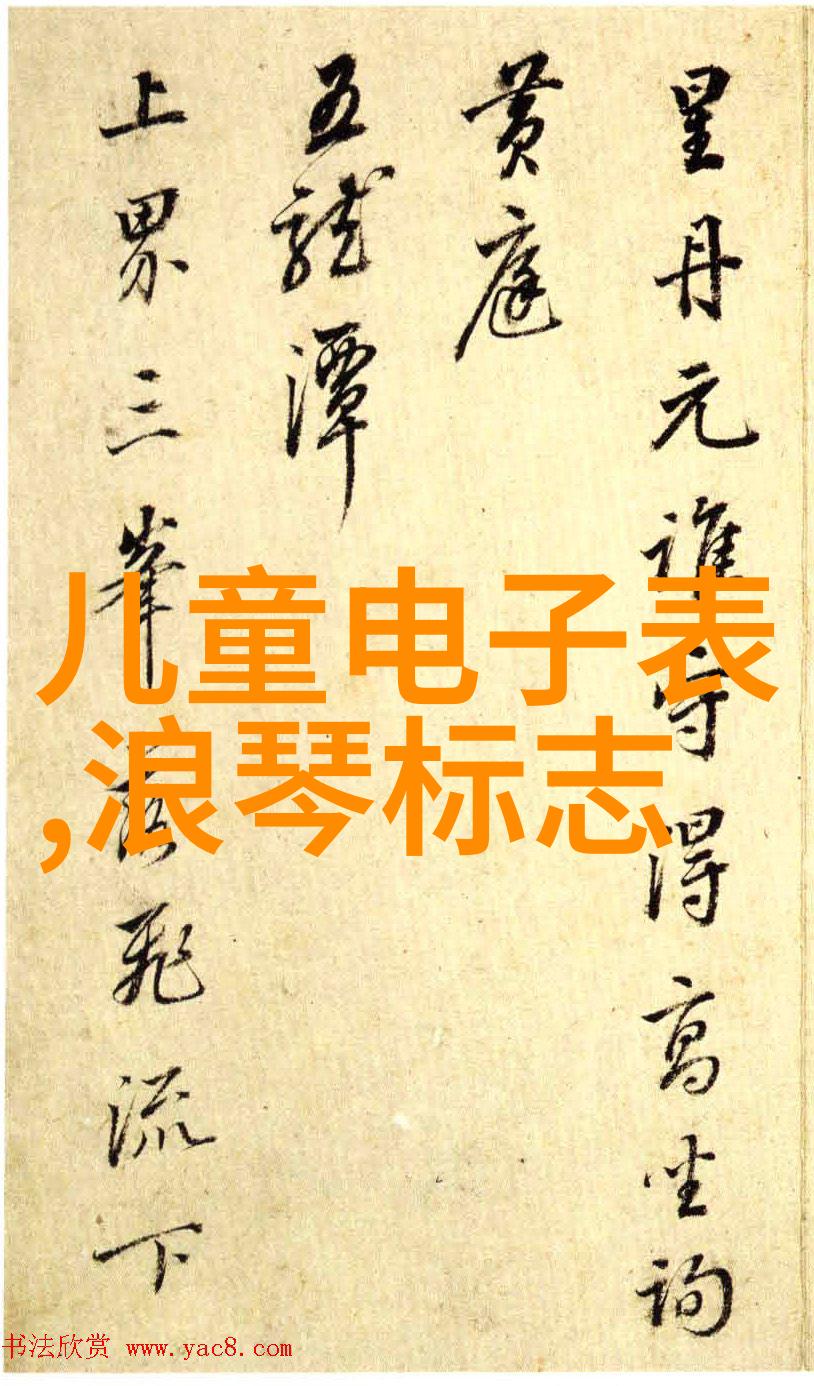 星丹元誰得高坐詢
黄庭
五龍潭
上界三峯飛流下
儿童电子表
,浪琴标志
书法欣赏 www.yac8.com